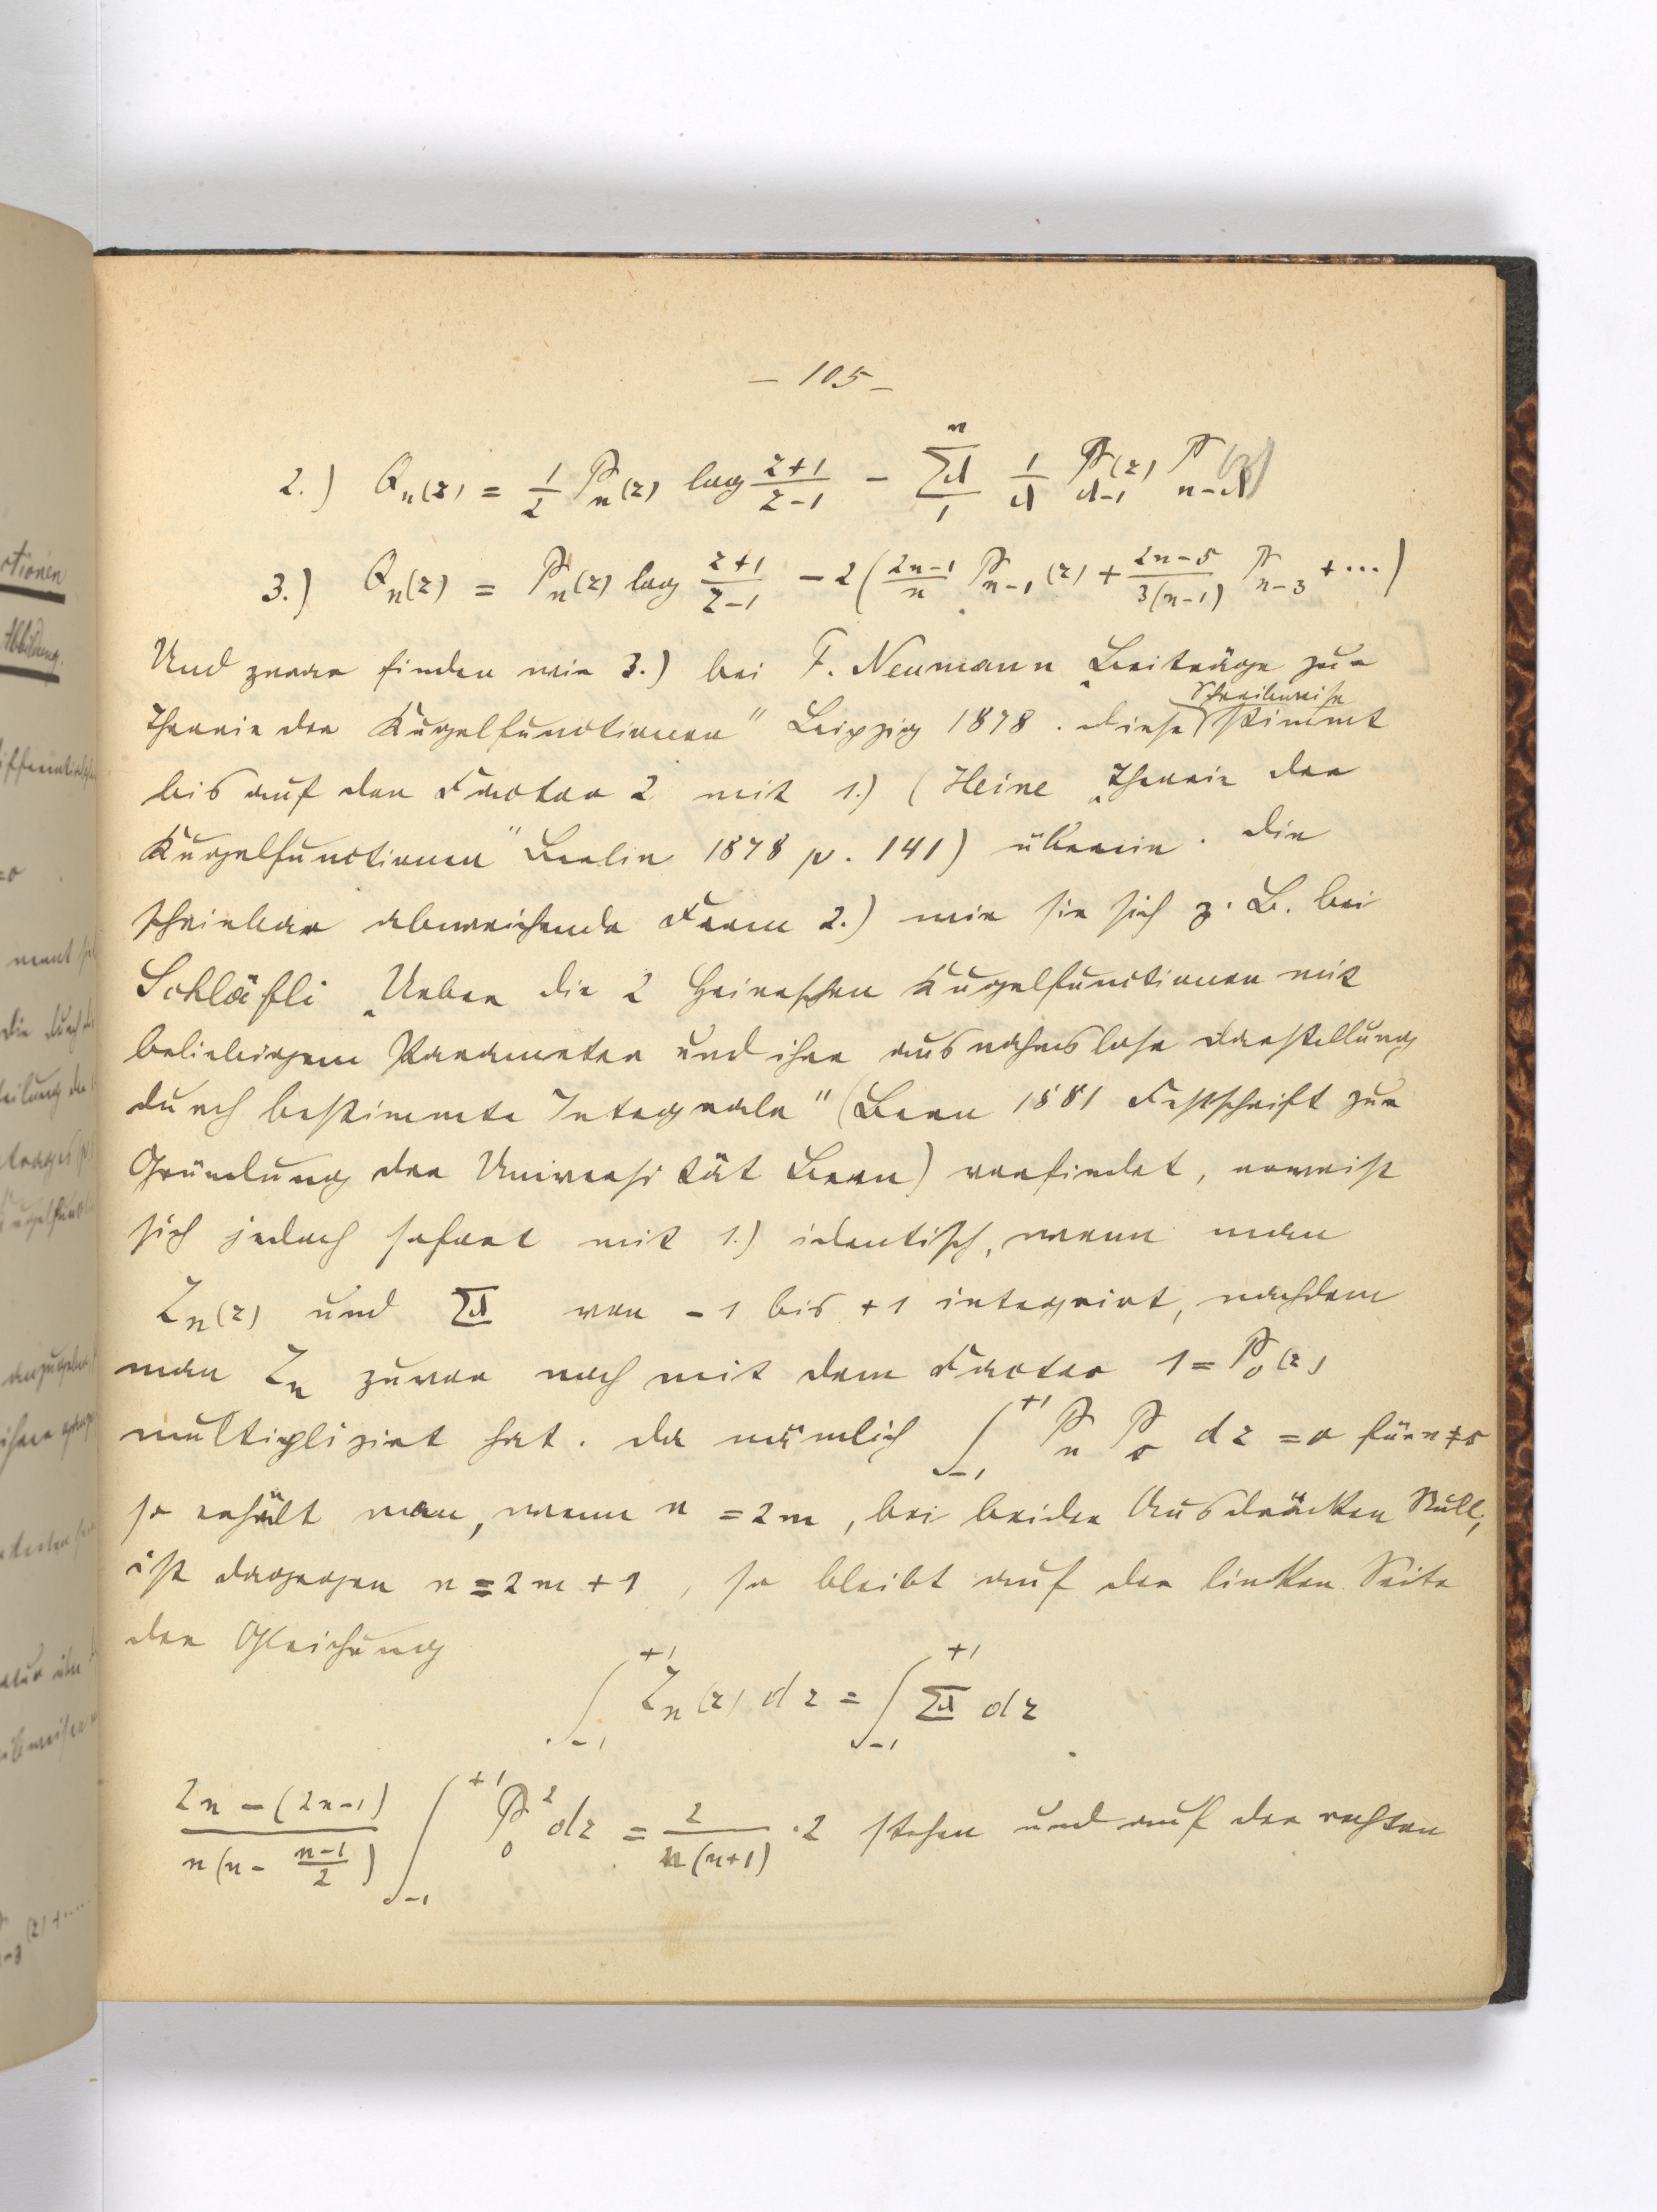 – 105 –
2.) Q_n(z) = 1/2 P_n(z) log (z+1)/(z-1) – Σ_1^n 1/λ P_{λ-1}(z) P_{n-λ}(z)
3.) Q_n(z) = P_n(z) log (z+1)/(z-1) – 2((2n-1)/n P_{n-1}(z) + (2n-5)/(3(n-1)) P_{n-3} + ...)
Und zwar finden wir 3.) bei F. Neumann „Beiträge zur
Theorie der Kugelfunctionen" Leipzig 1878. Diese Schreibweise stimmt
bis auf den Factor 2 mit 1.) (Heine „Theorie der
Kugelfunctionen" Berlin 1878 p. 141) überein. Die
scheinbar abweichende Form 2.) wie sie sich z. B. bei
Schläfli „Ueber die 2 Heineschen Kugelfunctionen mit
beliebigem Parameter und ihre ausnahmslose Darstellung
durch bestimmte Integrale" (Bern 1881 Festschrift zur
Gründung der Universität Bern) vorfindet, erweist
sich jedoch sofort mit 1.) identisch, wenn man
Z_n(z) und Σ von -1 bis +1 integrirt, nachdem
man Z_n zuvor noch mit dem Factor 1 = P_0(z)
multiplizirt hat. Da nämlich ∫_{-1}^{+1} P_n P_0 dz = 0 für n ≠ 0
so erhält man, wenn n = 2m, bei beiden Ausdrücken Null;
ist dagegen n = 2m + 1, so bleibt auf der linken Seite
der Gleichung
∫_{-1}^{+1} Z_n(z) dz = ∫_{-1}^{+1} Σ dz
(2n - (2n-1))/(n(n - (n-1)/2)) ∫_{-1}^{+1} P_0^2 dz = 2/(n(n+1)) · 2 stehen und auf der rechten